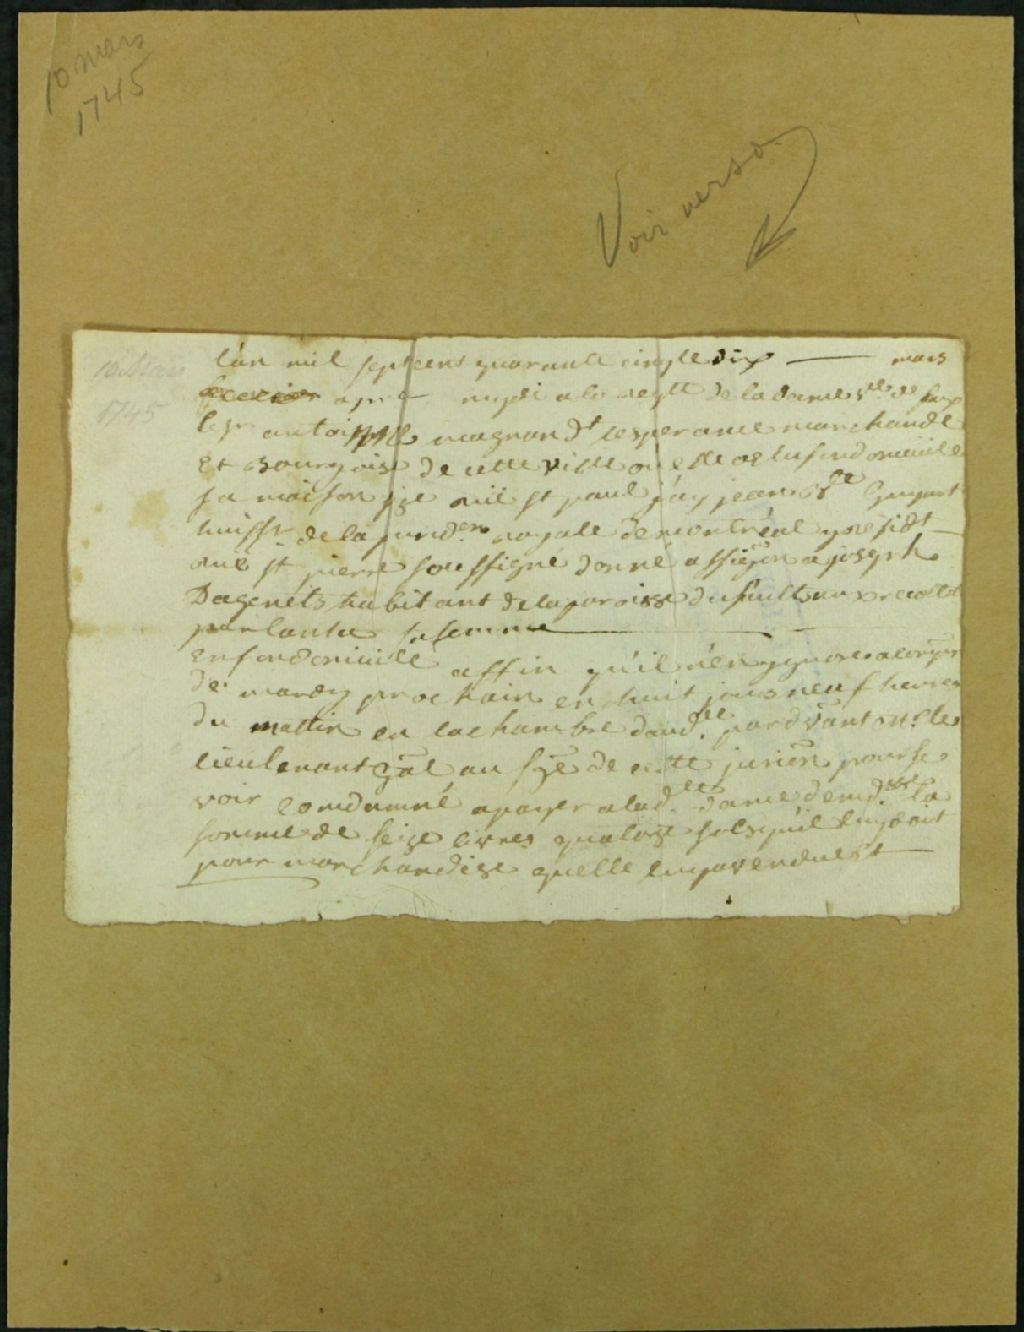 10 mars
1745
Voir verso
10 mars
1745
L'an mil sept cent quarante cinq le dix — mars
apres midy a la reqte de la dame vve de feu
le sr antoine magnan dt lesperance marchande
Et Bourgoise de cette ville ou elle a elu son domicile
sa maison size rüe st paul j'ay jean Bte Guyart
huissr de la jurid.on royalle de montréal y residt
rue st pierre soussigné donné assig̃on a joseph
Dagenets habitant de la paroisse du sault au recolet
parlant a sa femme
En son domicille affin qu'il n'en ygnore a comp̃oir
de mardy prochain en huit jours neuf heures
du mattin en la chambre d'aud.ce pardvant mr le
lieutenant g̃al au siege de cette jurion pour se
voir condamné a payer a lad.te dame demd.sse la
somme de seize livres quatorze sols qu'il luy doit
pour marchandise quelle luy a vendu et